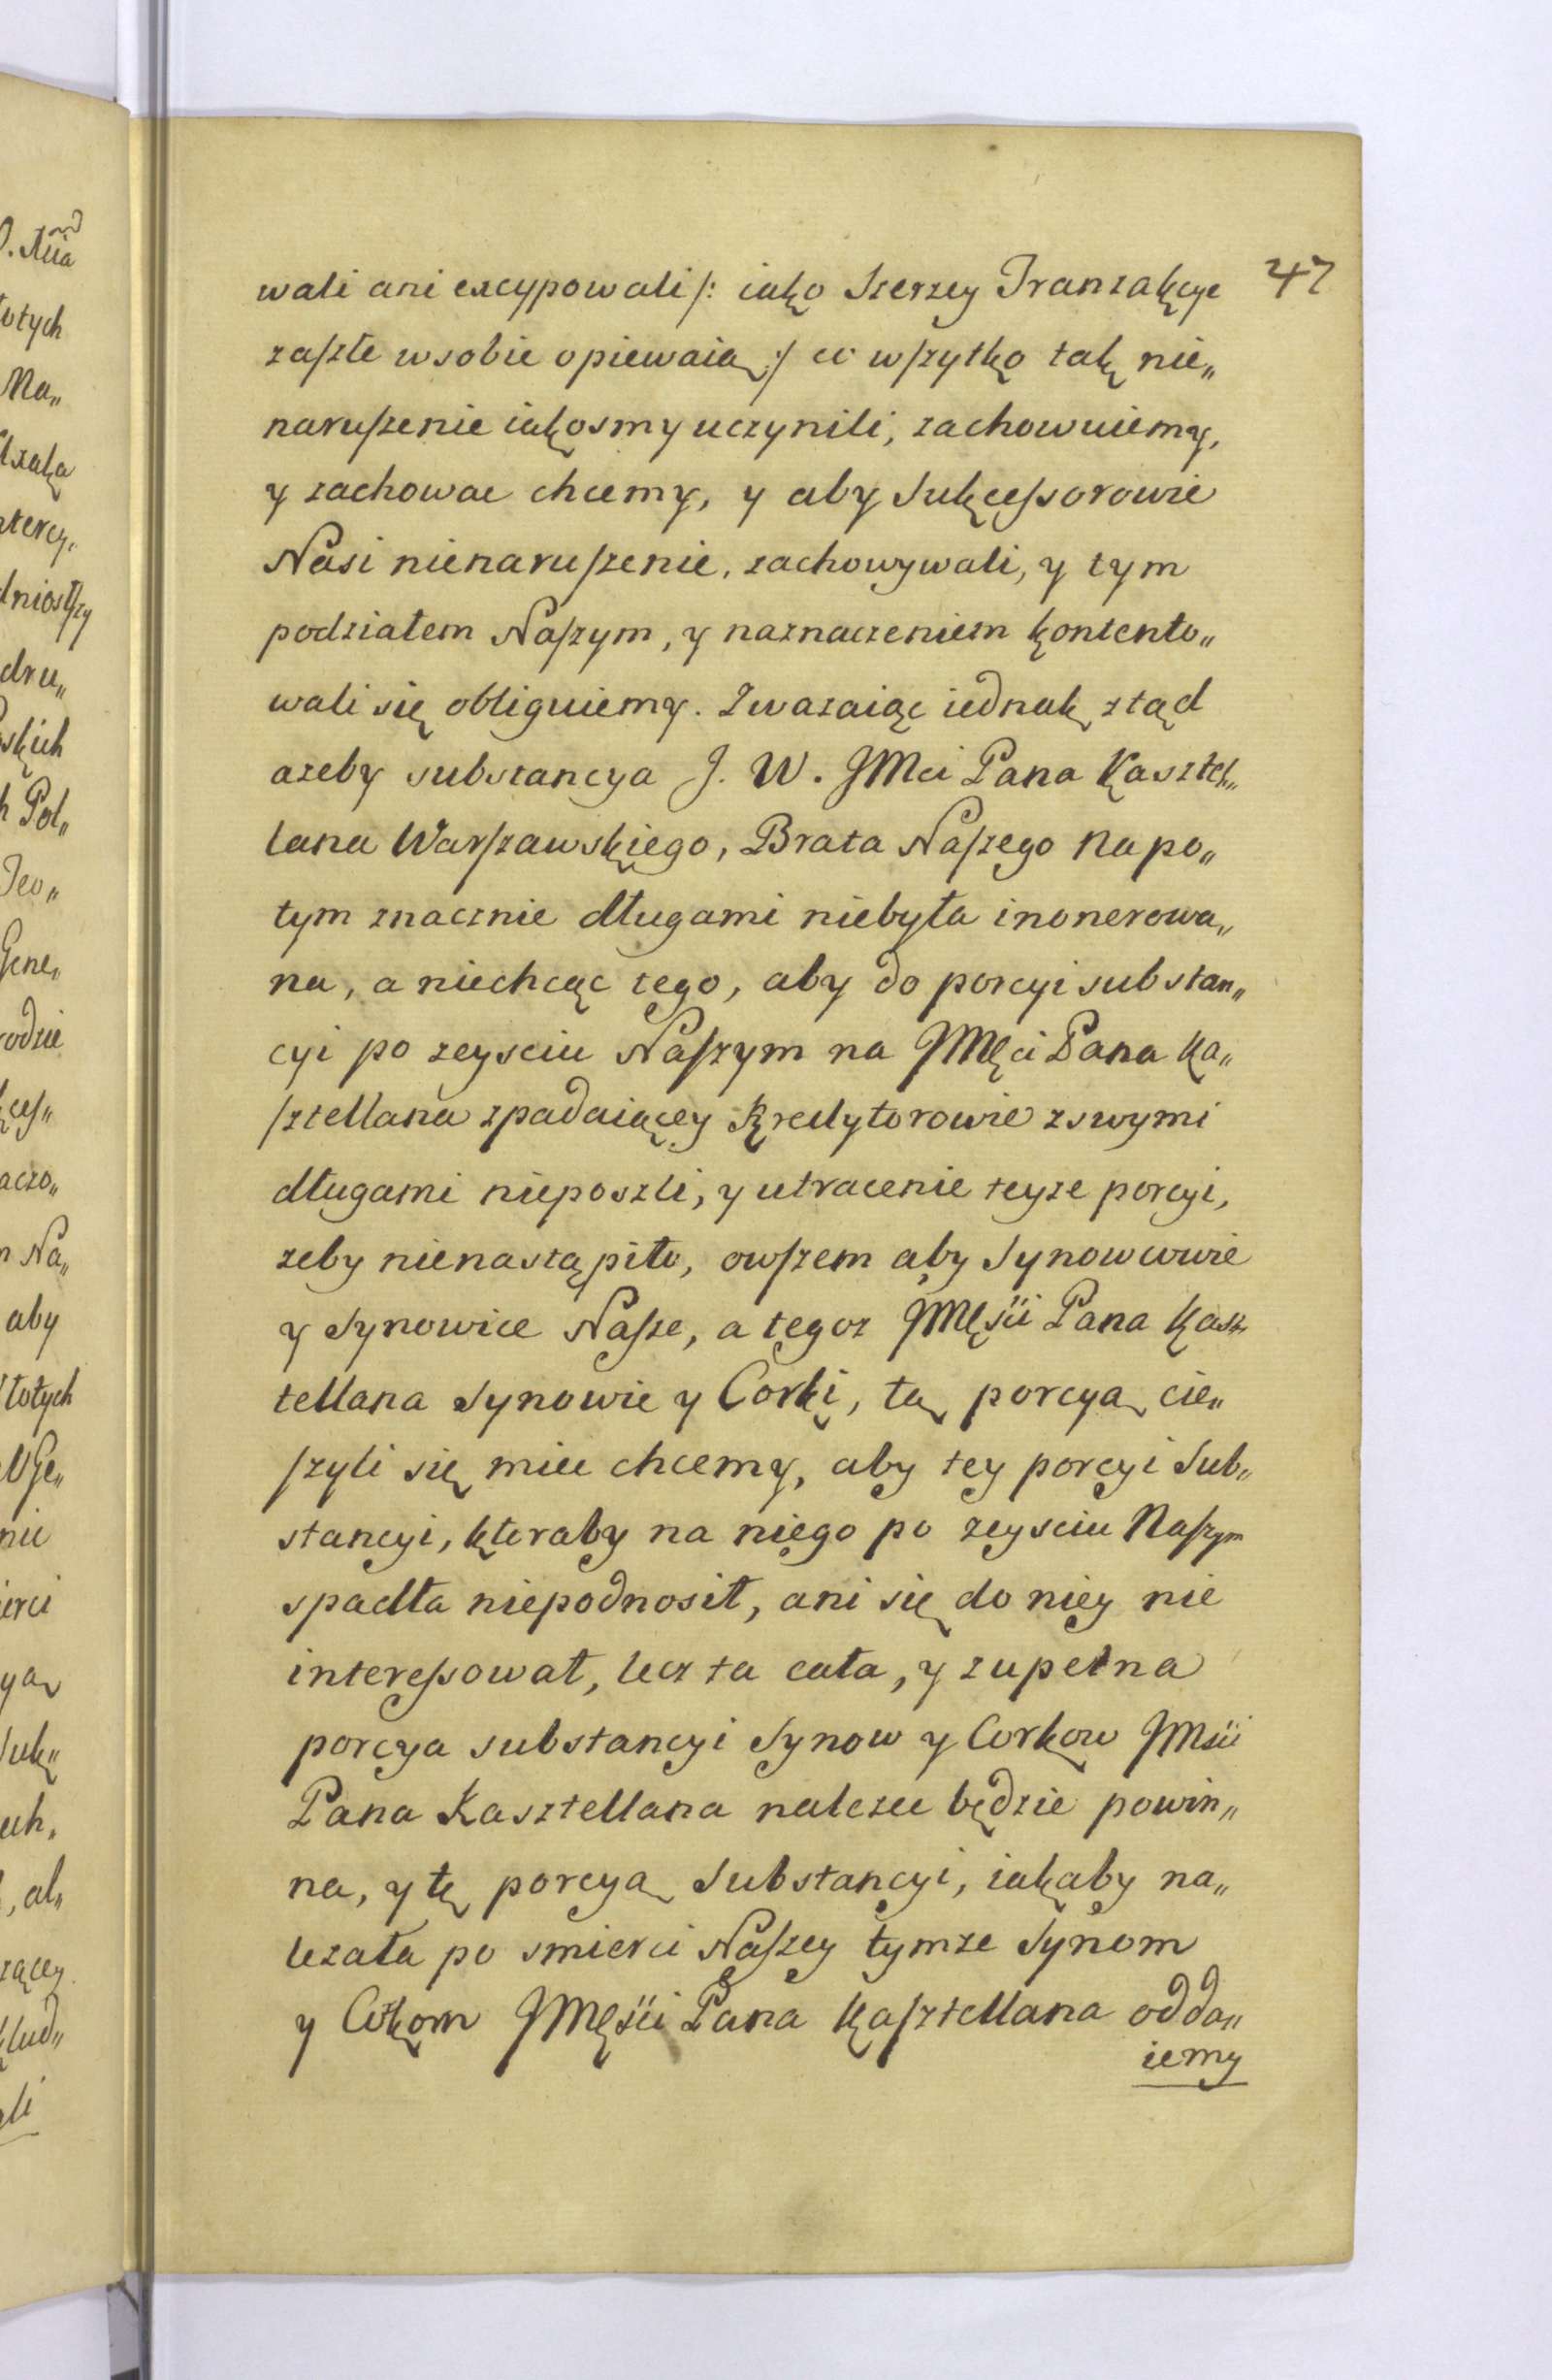 47
wali ani excypowali /: iako szerzey Tranzakcye
zaszłe w sobie opiewaią :/ co wszytko tak nie„
naruszenie iakosmy uczynili, zachowuiemy,
y zachowac chcemy, y aby Sukcessorowie
Nasi nienaruszenie, zachowywali, y tym
podziałem Naszym, y naznaczeniem kontento„
wali się obliguiemy. Zwazaiąc iednak ztąd
azeby substancya J. W. JMci Pana Kasztel„
lana Warszawskiego, Brata Naszego na po„
tym znacznie długami niebyła inonerowa„
na, a niechcąc tego, aby do porcyi substan„
cyi po zeysciu Naszym na JMci Pana Ka„
sztellana zpadaiącey Kredytorowie z swymi
długami nieposzli, y utracenie teyze porcyi,
zeby nienastąpiło, owszem aby Synowcowie
y Synowice Nasze, a tegoz JMści Pana Kasz
tellana Synowie y Corki, tą porcyą cie„
szyli się miec chcemy, aby tey porcyi Sub„
stancyi, ktoraby na niego po zeysciu Naszym
spadła niepodnosił, ani się do niey nie
interessował, lecz ta cała, y zupełna
porcya substancyi Synow y Corkow JMści
Pana Kasztellana nalezec będzie powin„
na, y tę porcyą Substancyi, iakaby na„
lezała po smierci Naszey tymze Synom
y Corkom JMści Pana Kasztellana odda„
iemy